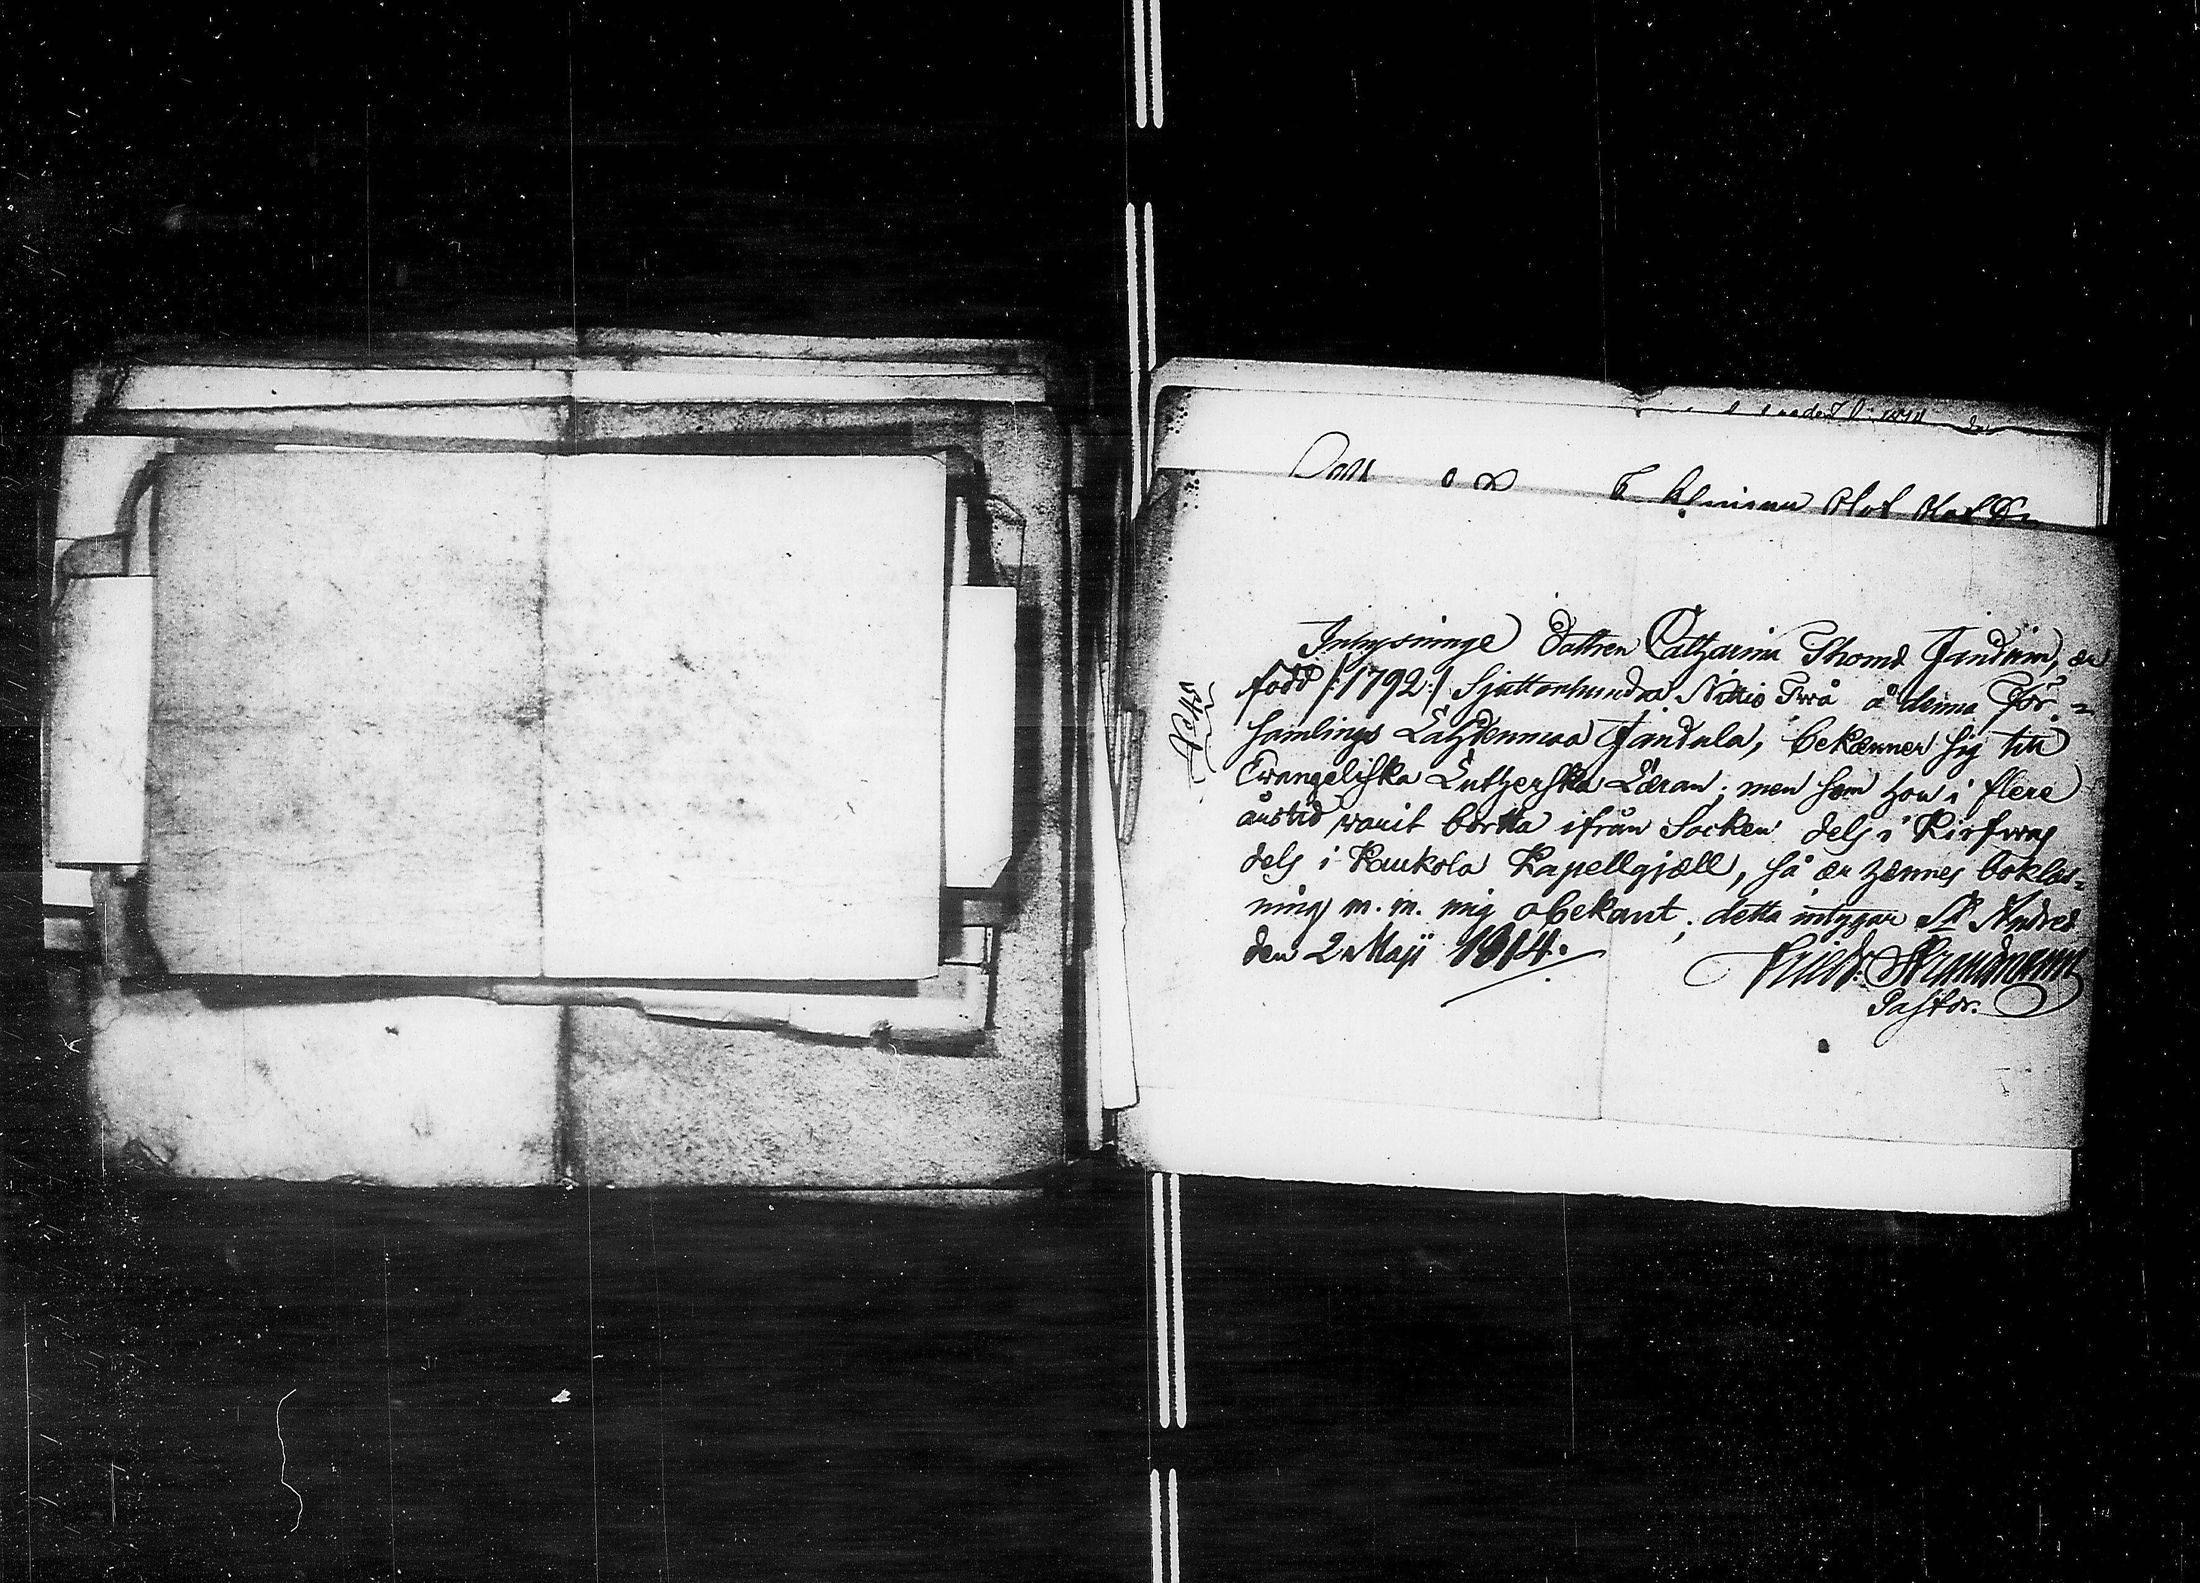 Inhysninge Dattren Catharina Thoms Janduin, är
född /:1792:/ Sjuttonhundra Nittio Twå å denna För=
samlings Lahdenmaa Jandula, bekænner sig till
Evangeliska Lutherska Læran; men som hon i flere
årstid warit bortta ifrån Socken dels i Kirfwus
dels i Kaukola Kapellgjæll, så ær hennes boklæs=
ning m. m. mig obekant; detta intygar St Andreæ
den 2 Maji 1814.
Friedr: Strandmann
Pastor.